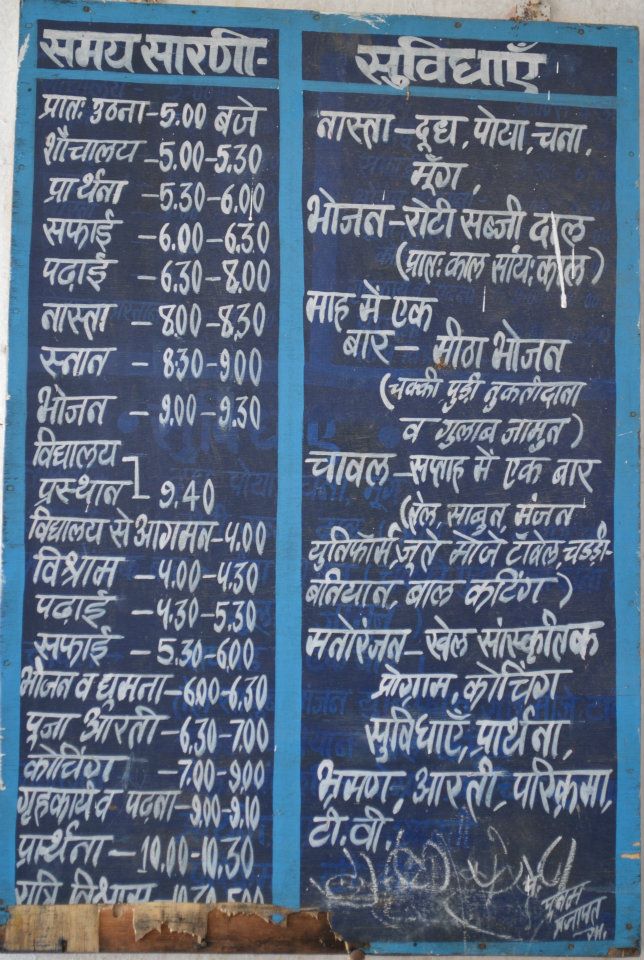 समय सारणी-
प्रातः उठना-5.00 बजे
शौचालय -5.00-5.30
प्रार्थना -5.30-6.00
सफाई -6.00-6.30
पढाई -6.30-8.00
नास्ता -8.00-8.30
स्नान -8.30-9.00
भोजन -9.00-9.30
विद्यालय
प्रस्थान 9.40
विद्यालय से आगमन-4.00
विश्राम -4.00-4.30
पढ़ाई -4.30-5.30
सफाई -5.30-6.00
भोजन व घुमना-6.00-6.30
पूजा आरती -6.30-7.00
कोचिंग -7.00-9.00
गृहकार्य व पढ़ना -9.00-9.10
प्रार्थना -10.00-10.30
रात्रि विश्राम 10.30 5.00
सुविधाएँ
नास्ता-दूध, पोया, चना,
मूँग,
भोजन-रोटी सब्जी दाल
(प्रातः काल सांयः काल)
माह मै एक
बार- मीठा भोजन
(चक्की पुड़ी नुकतीदाना
व गुलाब जामुन)
चावल-सप्ताह मै एक बार
(तेल, साबुन, मंजन
युनिफॉर्म, जूते मौजे टॉवेल, चड्डी-
बनियान, बाल कटिंग)
मनोरंजन-खेल सांस्कृतिक
प्रोग्राम, कोचिंग
सुविधाएँ, प्रार्थना,
भ्रमण, आरती, परिक्रमा,
टी.वी.